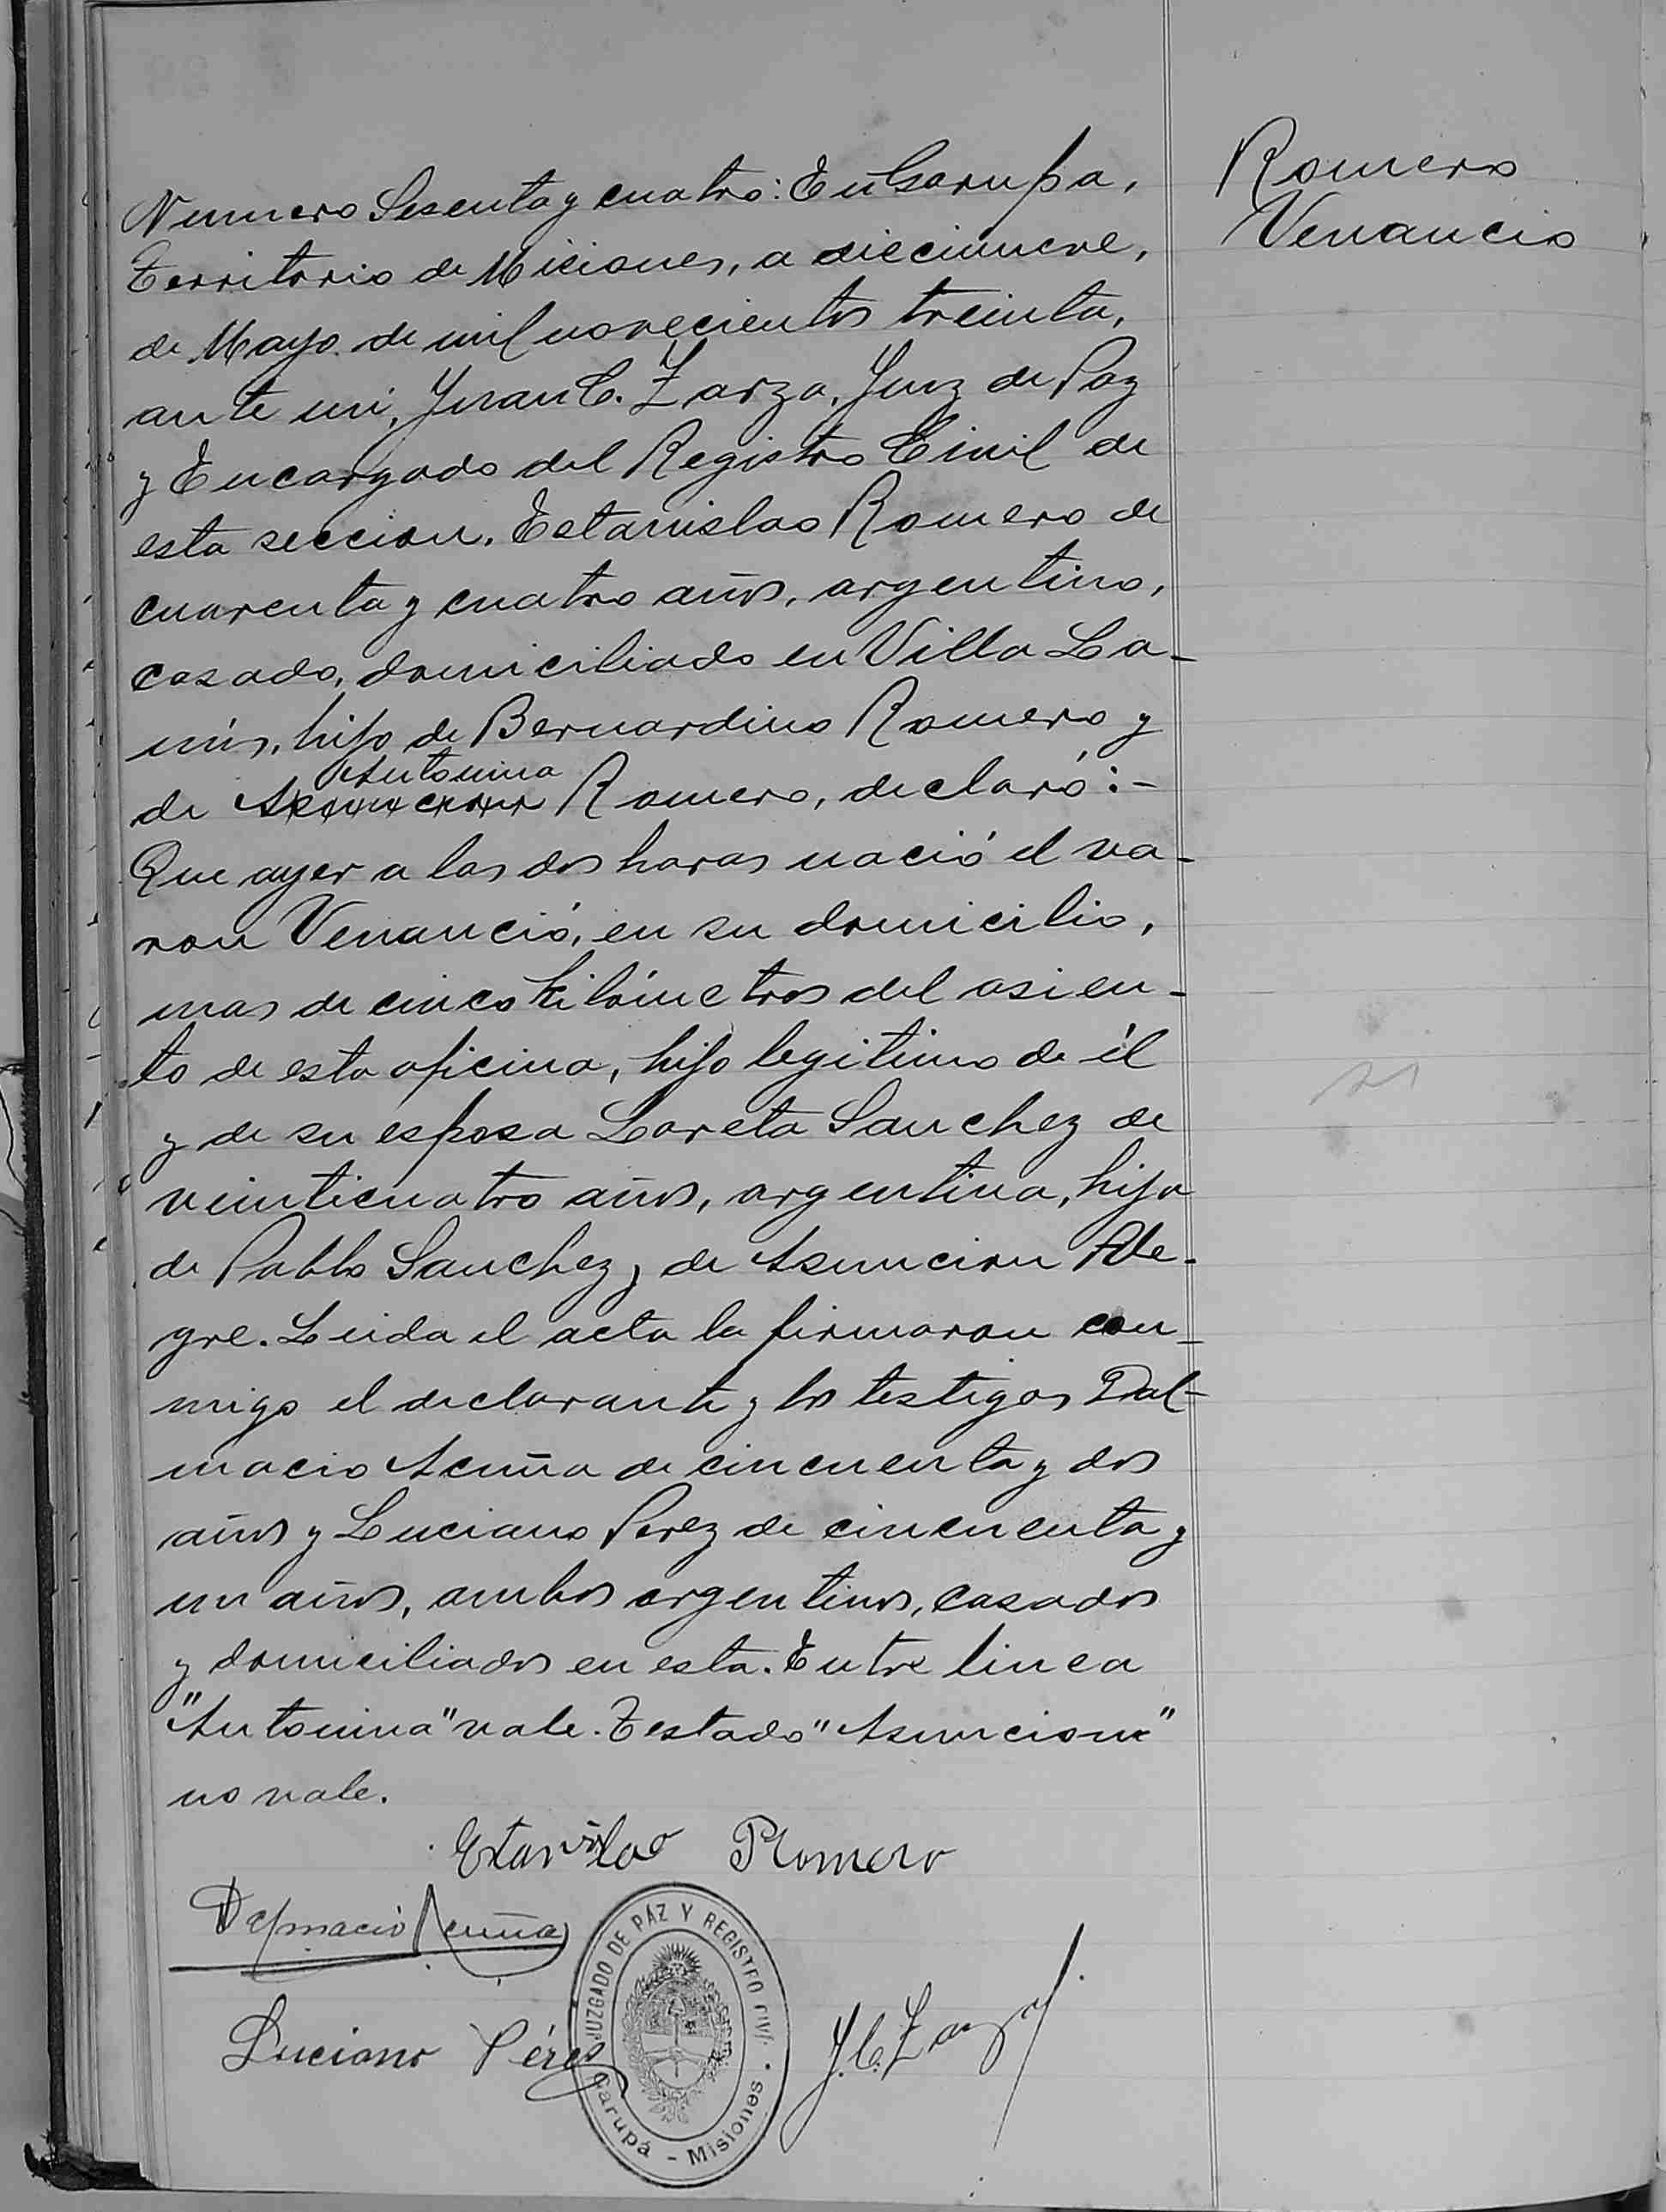 Romero
Venancio
Numero Sesenta y cuatro: En Garupa,
Territorio de Miciones, a diecinueve,
de Mayo de mil novecientos treinta,
ante mi, Juan C. Zarza, Juez de Paz
y Encargado del Registro Civil de
esta seccion, Estanislao Romero de
cuarenta y cuatro años, argentino,
casado, domiciliado en Villa La-
nús, hijo de Bernardino Romero y
Antonina
de Asuncion Romero, declaró:-
Que ayer a las dos horas nació el va-
ron Venanció, en su domicilio,
mas de cinco kilómetros del asien-
to de esta oficina, hijo legitimo de él
y de su esposa Loreta Sanchez de
veinticuatro años, argentina, hija
de Pablo Sanchez y de Asuncion Ale-
gre. Leida el acta la firmaron con-
migo el declarante y los testigos Dal-
macio Acuña de cincuenta y dos
años y Luciano Perez de cincuenta y
un años, ambos argentinos, casados
y domiciliados en esta. Entre linea
"Antonina" vale. Testado "Asuncion"
no vale.
Estanislao Romero
Dalmacio Acuña
Luciano Pérez
J. C. Zarza
JUZGADO DE PAZ Y REGISTRO CIVIL
Garupá - Misiones